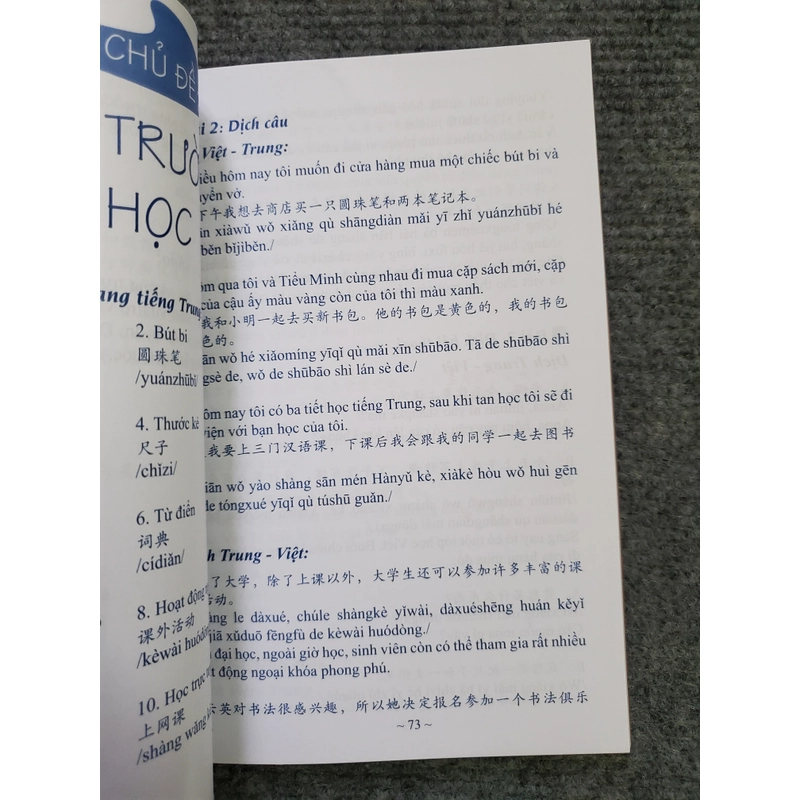 CHỦ ĐỀ
TRƯỜ
HỌC
ang tiếng Trung
2. Bút bi
圆珠笔
/yuánzhūbǐ
4. Thước kẻ
尺子
/chǐzi/
6. Từ điển
词典
/cídiǎn/
8. Hoạt động
课外活动
/kèwài huódòng
10. Học trực
上网课
/shàng wǎng
i 2: Dịch câu
Việt - Trung:
iều hôm nay tôi muốn đi cửa hàng mua một chiếc bút bi và
uyển vở.
下午我想去商店买一只圆珠笔和两本笔记本。
ān xiàwǔ wǒ xiǎng qù shāngdiàn mǎi yī zhǐ yuánzhūbǐ hé
běn bǐjìběn./
ôm qua tôi và Tiểu Minh cùng nhau đi mua cặp sách mới, cặp
của cậu ấy màu vàng còn của tôi thì màu xanh.
我和小明一起去买新书包。他的书包是黄色的，我的书包
色的。
ān wǒ hé xiǎomíng yīqǐ qù mǎi xīn shūbāo. Tā de shūbāo shì
ngsè de, wǒ de shūbāo shì lán sè de./
ôm nay tôi có ba tiết học tiếng Trung, sau khi tan học tôi sẽ đi
viện với bạn học của tôi.
我要上三门汉语课，下课后我会跟我的同学一起去图书
iān wǒ yào shàng sān mén Hànyǔ kè, xiàkè hòu wǒ huì gēn
de tóngxué yīqǐ qù túshū guǎn./
ch Trung - Việt:
了大学，除了上课以外，大学生还可以参加许多丰富的课
活动。
àng le dàxué, chúle shàngkè yǐwài, dàxuéshēng huán kěyǐ
jiā xǔduō fēngfù de kèwài huódòng./
đại học, ngoài giờ học, sinh viên còn có thể tham gia rất nhiều
t động ngoại khóa phong phú.
英对书法很感兴趣，所以她决定报名参加一个书法俱乐
~ 73 ~